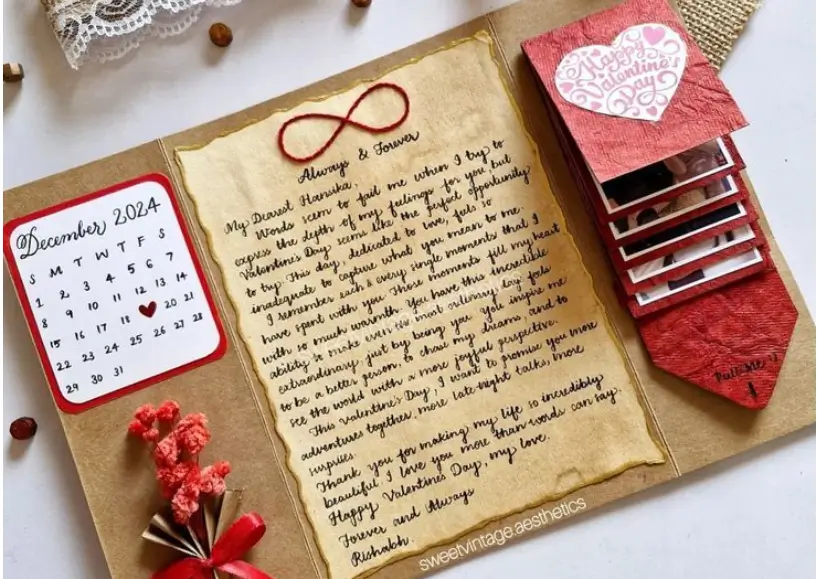 December 2024
S M T W T F S
1 2 3 4 5 6 7
8 9 10 11 12 13 14
15 16 17 18 20 21
22 23 24 25 26 27 28
29 30 31
Always & Forever
My Dearest Hansika,
Words seem to fail me when I try to
express the depth of my feelings for you, but
Valentine's Day seems like the perfect opportunity
to try. This day, dedicated to love, feels so
inadequate to capture what you mean to me.
I remember each & every single moments that I
have spent with you. Those moments fill my heart
with so much warmth. You have this incredible
ability to make even the most ordinary day feels
extraordinary, just by being you. You inspire me
to be a better person, to chase my dreams, and to
see the world with a more joyful perspective.
This Valentine's Day, I want to promise you more
adventures together, more late-night talks, more
surprises.
Thank you for making my life so incredibly
beautiful. I love you more than words can say.
Happy Valentines Day, my love.
Forever and Always
Rishabh.
sweetvintage.aesthetics
Happy
Valentine's
Day
Pull Me